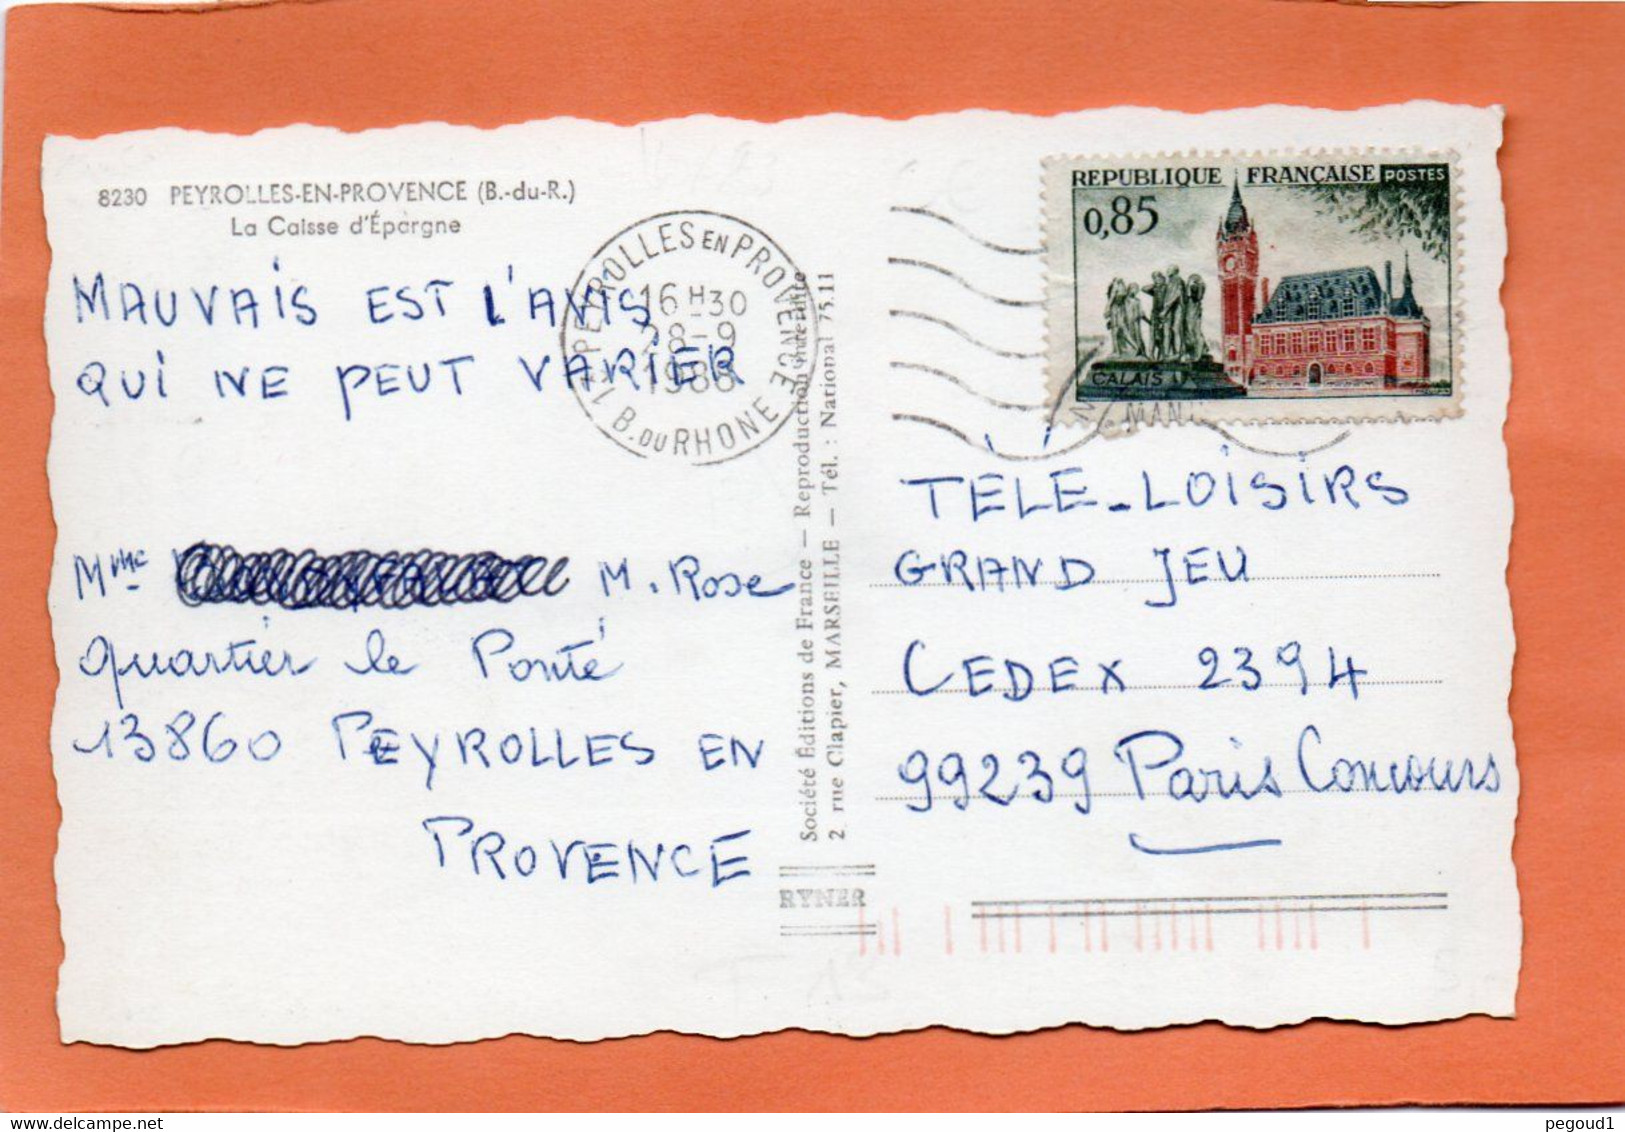 8230 PEYROLLES-EN-PROVENCE (B.-du-R.)
La Caisse d'Épargne
MAUVAIS EST L'AVIS
QUI NE PEUT VARIER
Mme M. Rose
quartier le Ponté
13860 PEYROLLES EN
PROVENCE
PEYROLLES EN PROVENCE
16 H 30
28-9
1986
13 B. DU RHONE
Société Éditions de France — Reproduction interdite
2, rue Clapier, MARSEILLE — Tél. : National 75.11
RYNER
REPUBLIQUE FRANÇAISE POSTES
0,85
CALAIS
TÉLÉ-LOISIRS
GRAND JEU
CEDEX 2394
99239 Paris Concours
pegoud1